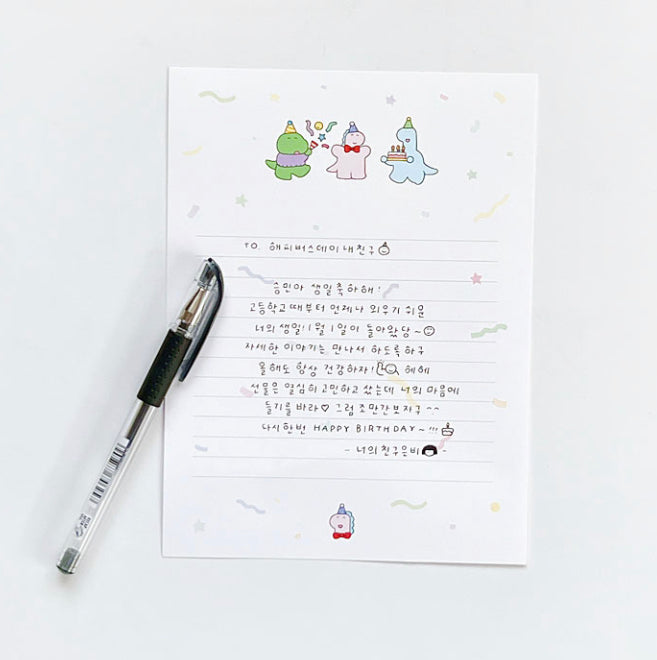 TO. 해피버스데이 내친구
승민아 생일축하해!
고등학교때부터 언제나 외우기 쉬운
너의 생일! 1월 1일이 돌아왔당~
자세한 이야기는 만나서 하도록하구
올해도 항상 건강하자! 헤헤
선물은 열심히 고민하고 샀는데 너의 마음에
들기를 바라♡ 그럼 조만간보자구 ^^
다시한번 HAPPY BIRTHDAY~!!!
- 너의 친구은비 -